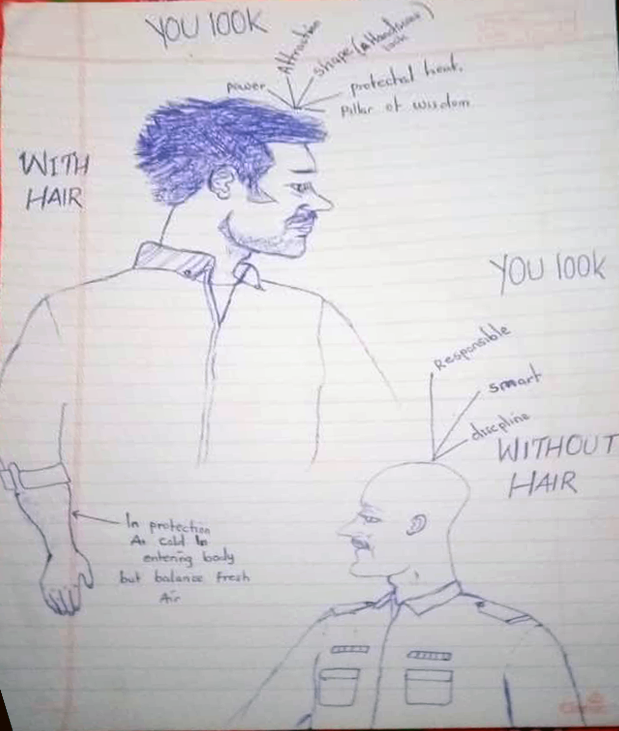 YOU look
Attraction
shape (attandsome
look
power
protectal heat.
Pillar of wisdom
WITH
HAIR
YOU look
Responsible
smart
discpline
WITHOUT
HAIR
In protection
As cold in
entering body
but balance Fresh
Air